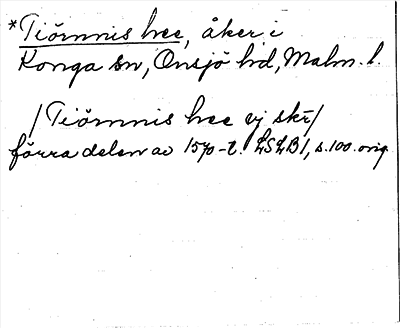 *Tiörnnis hee, åker i
Konga sn, Onsjö hd, Malm. l.
/Tiörnnis hee vj skr/
förra delen av 1570-t. LSLB1, s.100. orig.